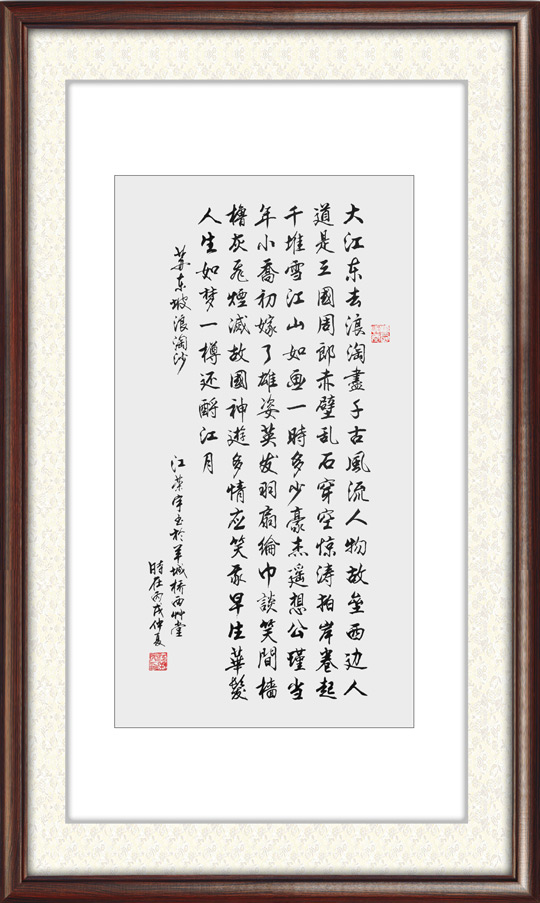 大江东去浪淘盡千古風流人物故垒西边人
道是三國周郎赤壁乱石穿空惊涛拍岸卷起
千堆雪江山如画一時多少豪杰遥想公瑾当
年小喬初嫁了雄姿英发羽扇綸巾談笑間檣
櫓灰飞煙滅故國神遊多情应笑我早生華髮
人生如梦一樽还酹江月
苏东坡浪淘沙
江荣宇书於羊城桥西艸堂
时在丙戌仲夏